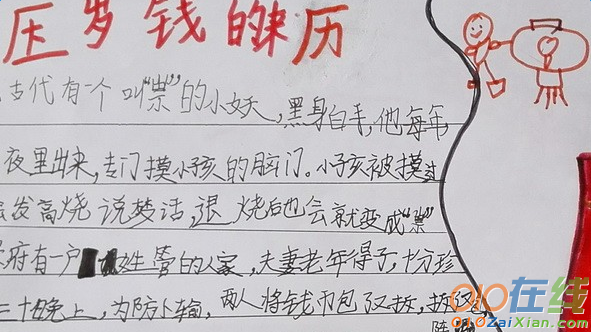 压岁钱的来历
古代有一个叫“祟”的小妖,黑身白手,他每年
夜里出来,专门摸小孩的脑门。小孩被摸过
会发高烧说梦话,退烧后也会就变成“祟”
府有一户 姓管的人家,夫妻老年得子,十分珍
三十晚上,为防
两人将钱币包又拆,拆又包
陈
010在线
010ZaiXian.com